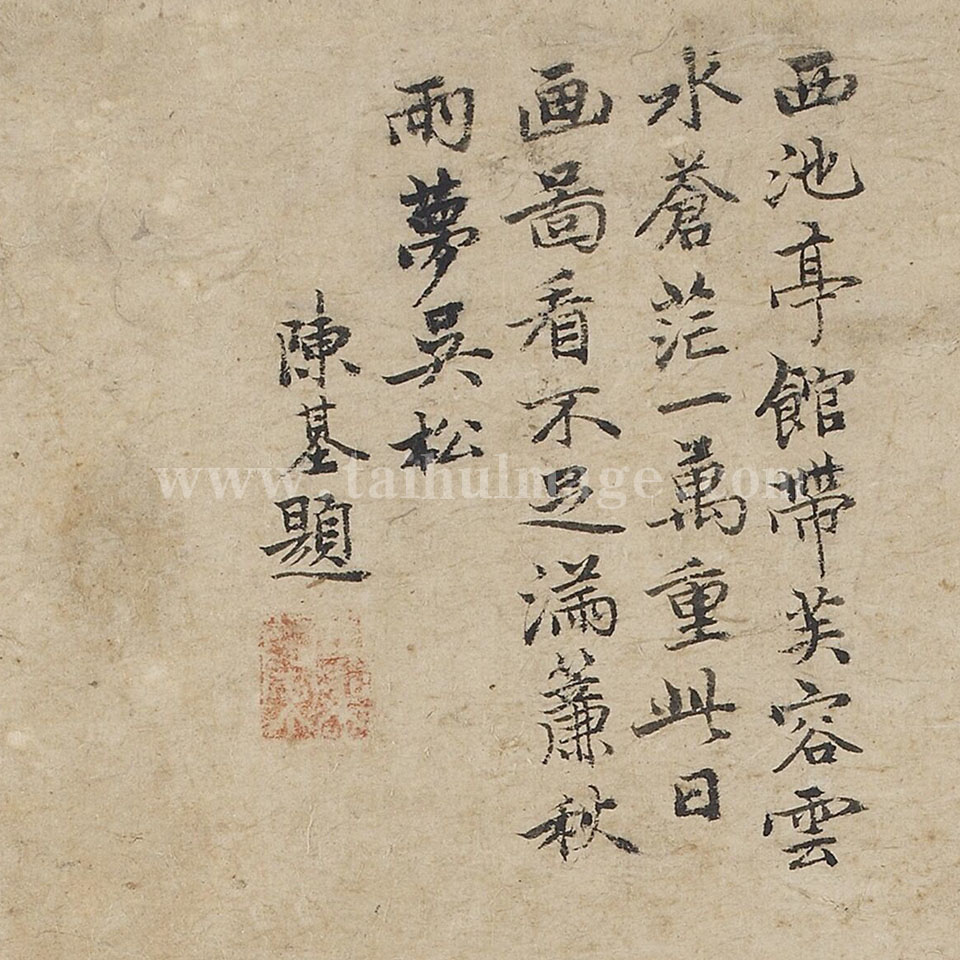 西池亭館帶芙容雲
水蒼茫一萬重此日
画啚看不足滿簾秋
雨夢吳松
陳基題
www.taihuimage.com